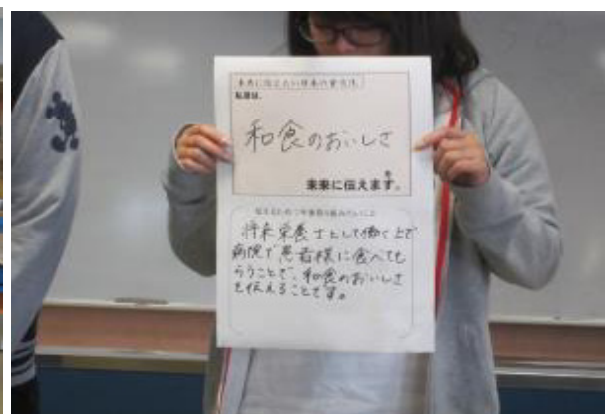 未来に伝えたい日本の食文化
私達は、
和食のおいしさ
を
未来に伝えます。
将来栄養士として働く上で
病院で患者様に食べても
らうことで、和食のおいしさ
を伝えることです。